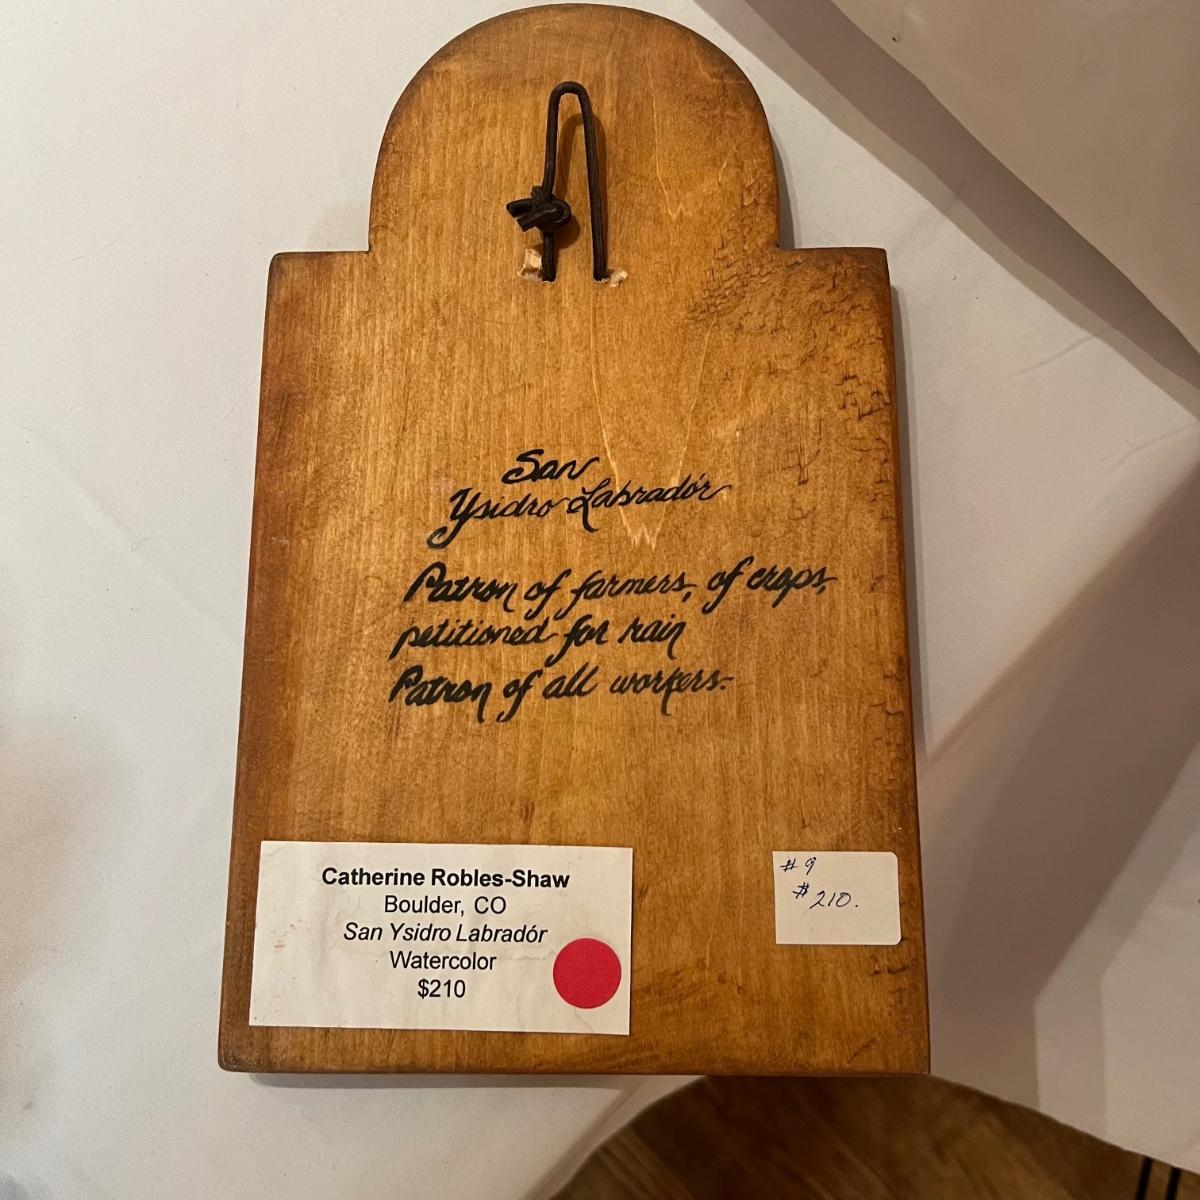 San
Ysidro Labradór
Patron of farmers, of crops,
petitioned for rain
Patron of all workers.
Catherine Robles-Shaw
Boulder, CO
San Ysidro Labradór
Watercolor
$210
# 9
$210.